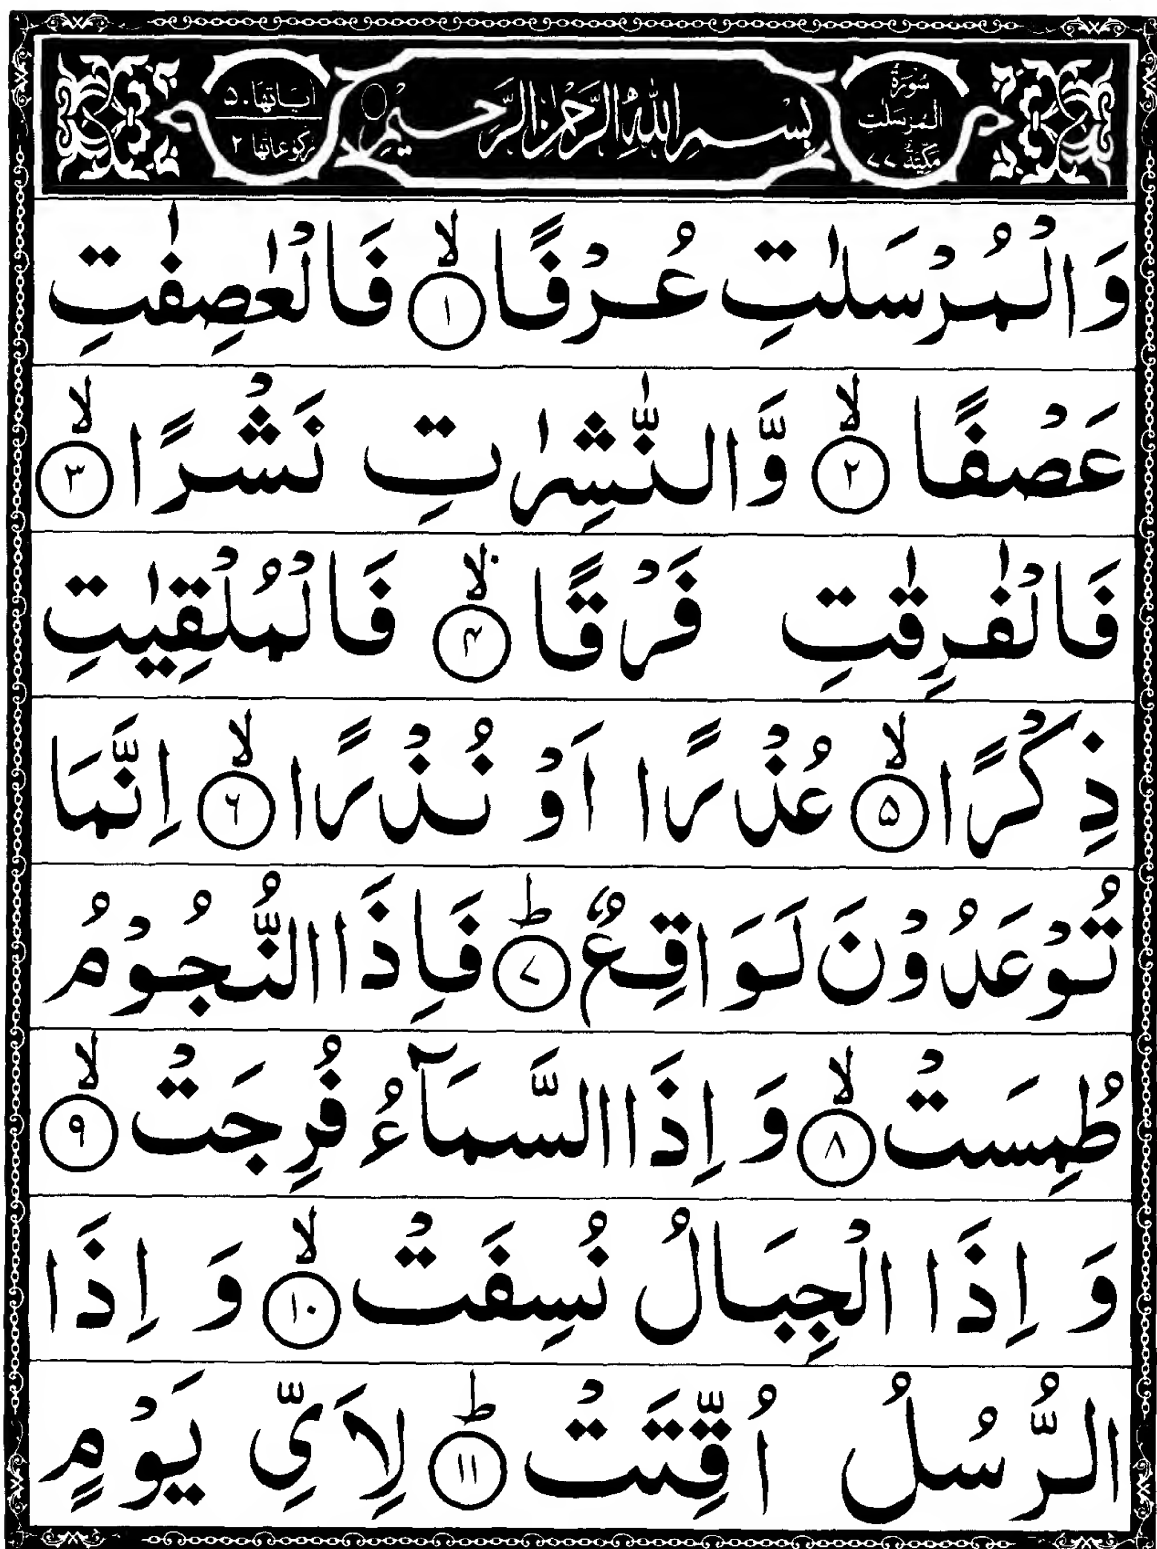 سُوْرَةُ
الْمُرْسَلٰت
مَكِّيَّةٌ ٧٧
بِسْمِ اللّٰهِ الرَّحْمٰنِ الرَّحِيْمِ
اٰيَاتُهَا ٥٠
رُكُوْعَاتُهَا ٢
وَالْمُرْسَلٰتِ عُرْفًا ۙ﴿١﴾ فَالْعٰصِفٰتِ
عَصْفًا ۙ﴿٢﴾ وَّالنّٰشِرٰتِ نَشْرًا ۙ﴿٣﴾
فَالْفٰرِقٰتِ فَرْقًا ۙ﴿۴﴾ فَالْمُلْقِيٰتِ
ذِكْرًا ۙ﴿۵﴾ عُذْرًا اَوْ نُذْرًا ۙ﴿۶﴾ اِنَّمَا
تُوْعَدُوْنَ لَوَاقِعٌ ؕ﴿٧﴾ فَاِذَا النُّجُوْمُ
طُمِسَتْ ۙ﴿٨﴾ وَ اِذَا السَّمَآءُ فُرِجَتْ ۙ﴿٩﴾
وَ اِذَا الْجِبَالُ نُسِفَتْ ۙ﴿١٠﴾ وَ اِذَا
الرُّسُلُ اُقِّتَتْ ؕ﴿١١﴾ لِاَيِّ يَوْمٍ